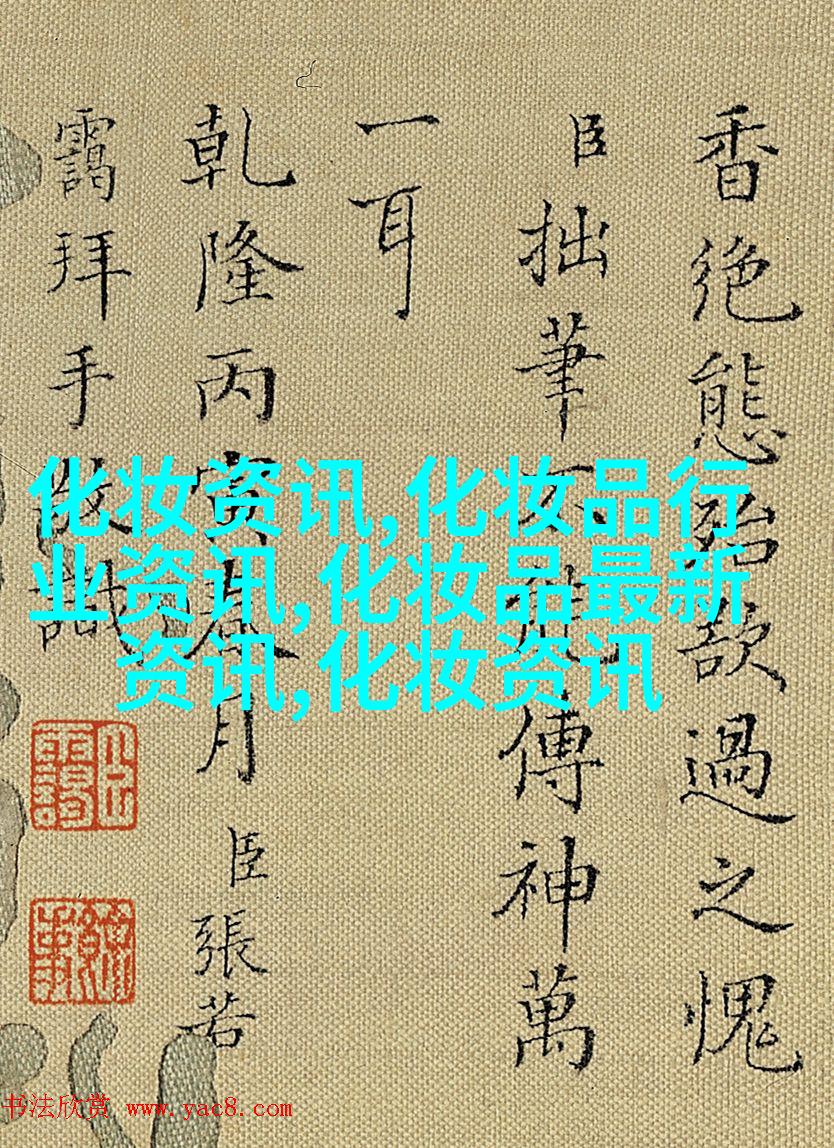 香絶態殆欲過之愧
臣拙筆不能傳神萬
一耳
乾隆丙寅春月臣張若
靄拜手敬識
化妆资讯,化妆品行
业资讯,化妆品最新
资讯,化妆资讯
书法欣赏 www.yac8.com